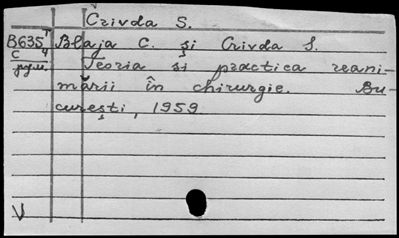 Crivda S.
B635 Blaja C. și Crivda S.
Teoria și practica reani-
mării în chirurgie. Bu-
curești, 1959
V